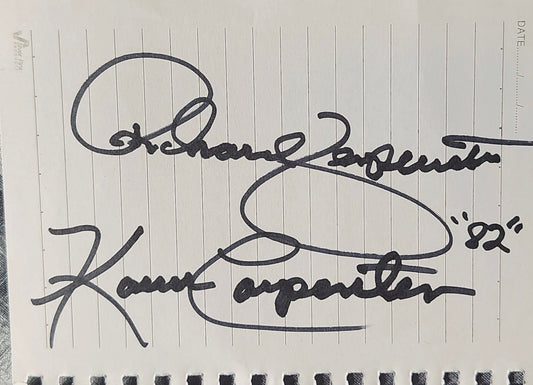 DATE ....../....../......
Richard Carpenter
"82"
Karen Carpenter